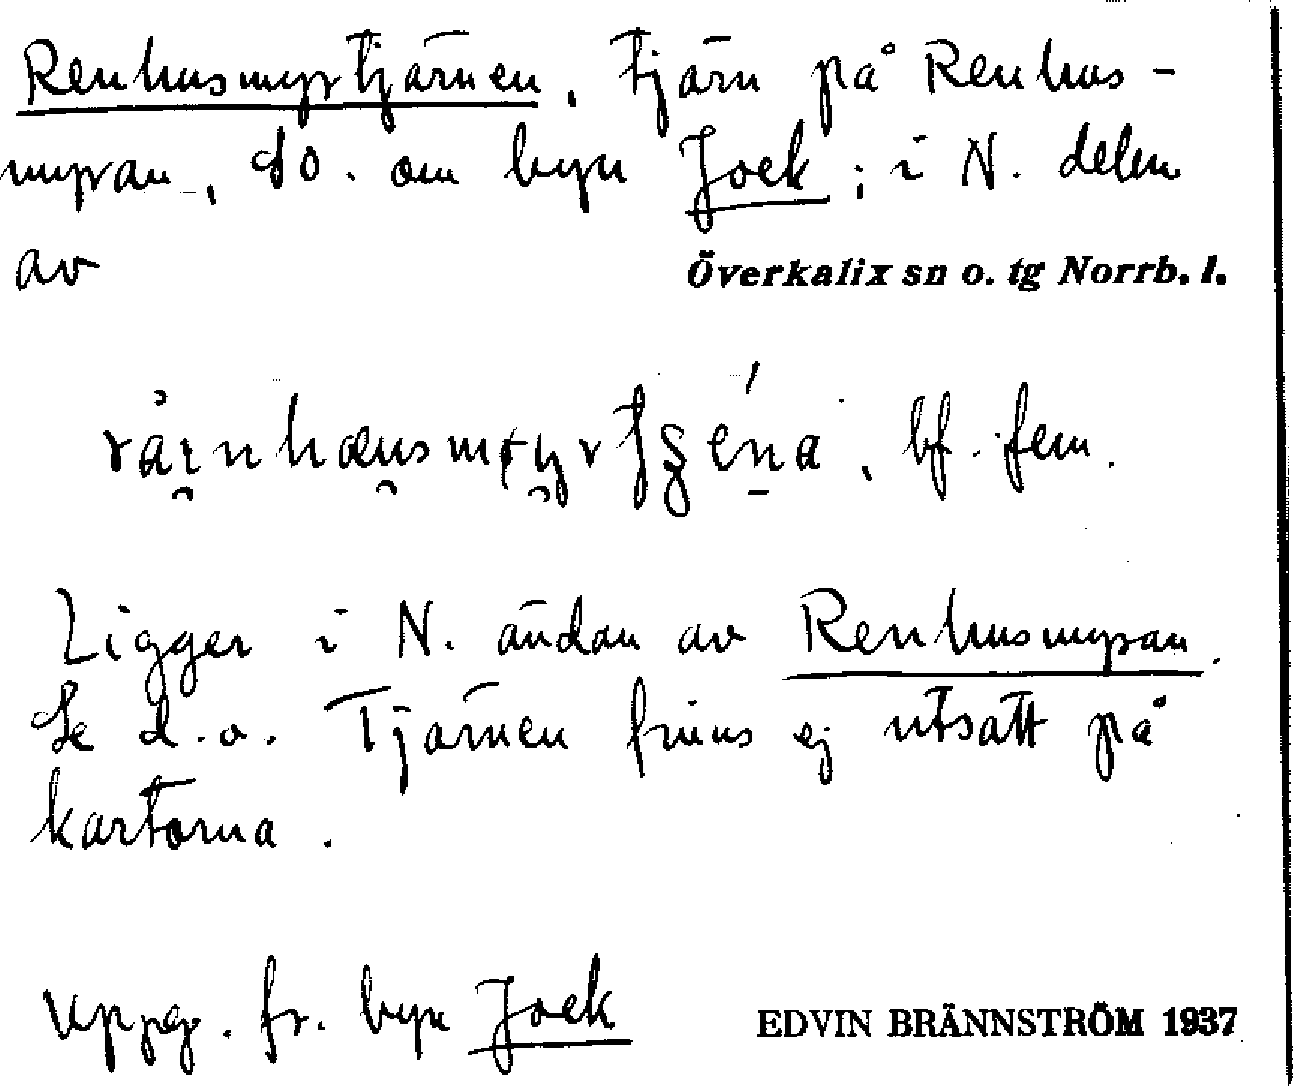 Renhusmyrtjärnen. Tjärn på Renhus-
myran, SO. om byn Joek; i N. delen
av Överkalix sn o. tg Norrb. l.
bf. fem.
Ligger i N. ändan av Renhusmyran.
Se d.o. Tjärnen finns ej utsatt på
kartorna.
Uppg. fr. byn Joek EDVIN BRÄNNSTRÖM 1937